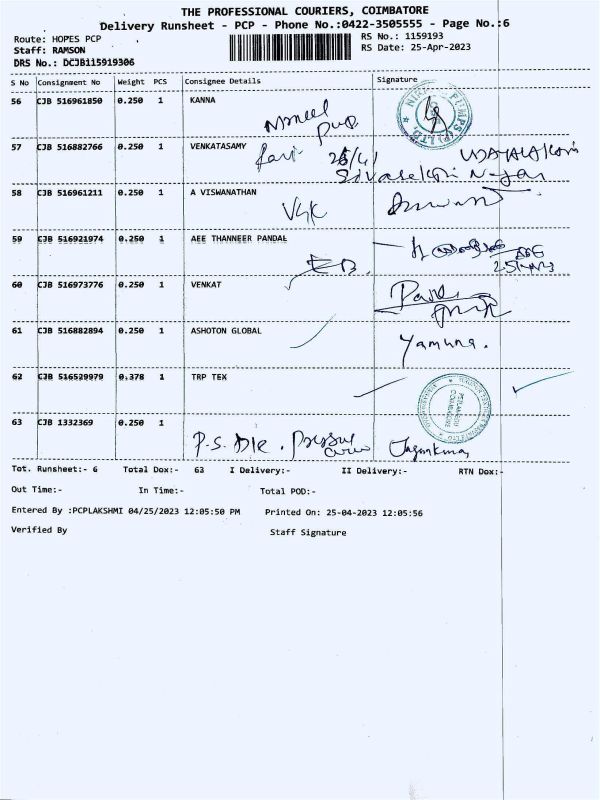 THE PROFESSIONAL COURIERS, COIMBATORE
Delivery Runsheet - PCP - Phone No.:0422-3505555 - Page No.:6
Route: HOPES PCP
RS No.: 1159193
Staff: RAMSON
RS Date: 25-Apr-2023
DRS No.: DCJB115919306
S No Consignment No Weight PCS Consignee Details Signature
56 CJB 516961850 0.250 1 KANNA
57 CJB 516882766 0.250 1 VENKATASAMY
58 CJB 516961211 0.250 1 A VISWANATHAN
VGK
59 CJB 516921974 0.250 1 AEE THANNEER PANDAL
EB.
60 CJB 516973776 0.250 1 VENKAT
61 CJB 516882894 0.250 1 ASHOTON GLOBAL
Yamuna.
62 CJB 516529979 0.378 1 TRP TEX
63 CJB 1332369 0.250 1
P.S. DIE.
Tot. Runsheet:- 6 Total Dox:- 63 I Delivery:- II Delivery:- RTN Dox:-
Out Time:- In Time:- Total POD:-
Entered By :PCPLAKSHMI 04/25/2023 12:05:50 PM Printed On: 25-04-2023 12:05:56
Verified By Staff Signature